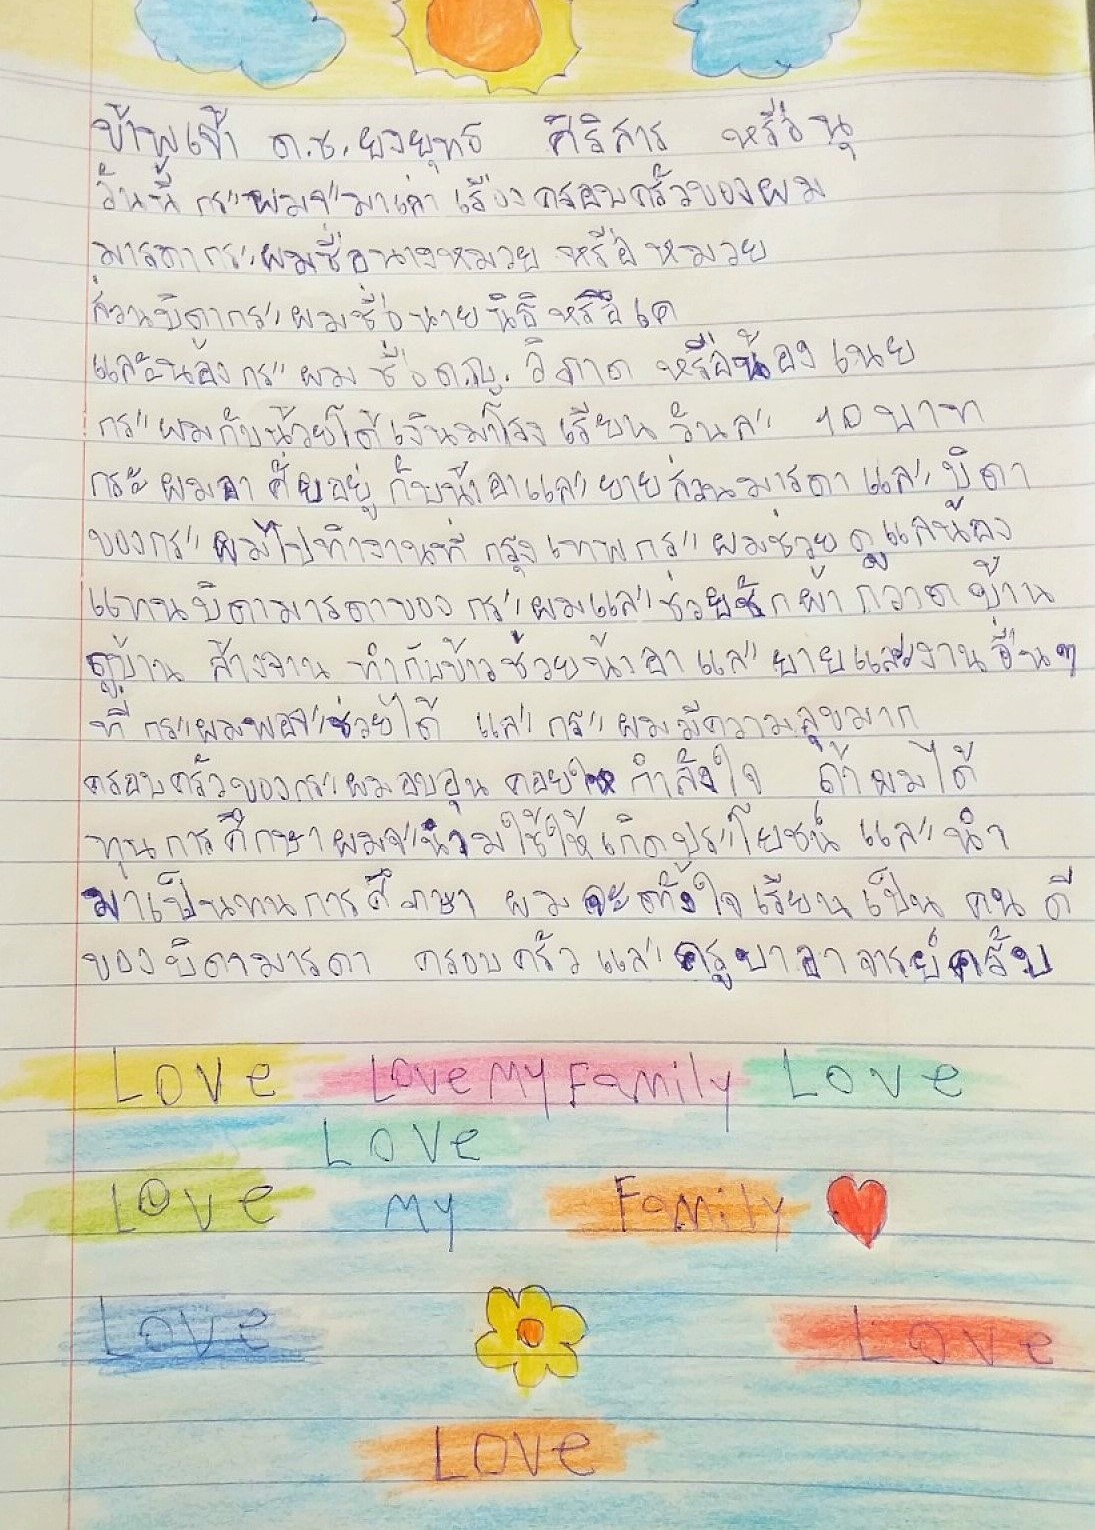 ข้าพเจ้า ด.ช.ยงยุทธ ศิริสาร หรือนุ
วันนี้ กระผมจะมาเล่า เรื่องครอบครัวของผม
มารดากระผมชื่อนางหมวย หรือ หมวย
ส่วนบิดากระผมชื่อนายนิธิหรือเค
และน้องกระผม ชื่อด.ญ. หรือน้อง เนย
กระผมกับน้อยได้เงินมาโรงเรียน วันละ 10 บาท
กระผมอาศัยอยู่ กับน้าอาและยายส่วนมารดา และบิดา
ของกระผมไปทำงานที่ กรุงเทพกระผมช่วยดูแลน้อง
แทนบิดามารดาของ กระผมและช่วยซักผ้า กวาดบ้าน
ถูบ้าน ล้างจาน ทำกับข้าวช่วยน้าอา และยายและงานอื่นๆ
ที่ กระผมพอจะช่วยได้ และ กระผมมีความสุขมาก
ครอบครัวของกระผมอบอุน คอยให กำลังใจ ถ้าผมได้
ทุนการศึกษาผมจะนำมใช้ให้เกิดประโยชน์ และ นำ
มาเป็นทนการศึกษา ผมจะตั้งใจเรียนเป็น คนดี
ของบิดามารดา ครอบครัว และ ครูบาอาจารย์ครับ
Love Love My Family Love
Love
Love My Family
Love Love
Love